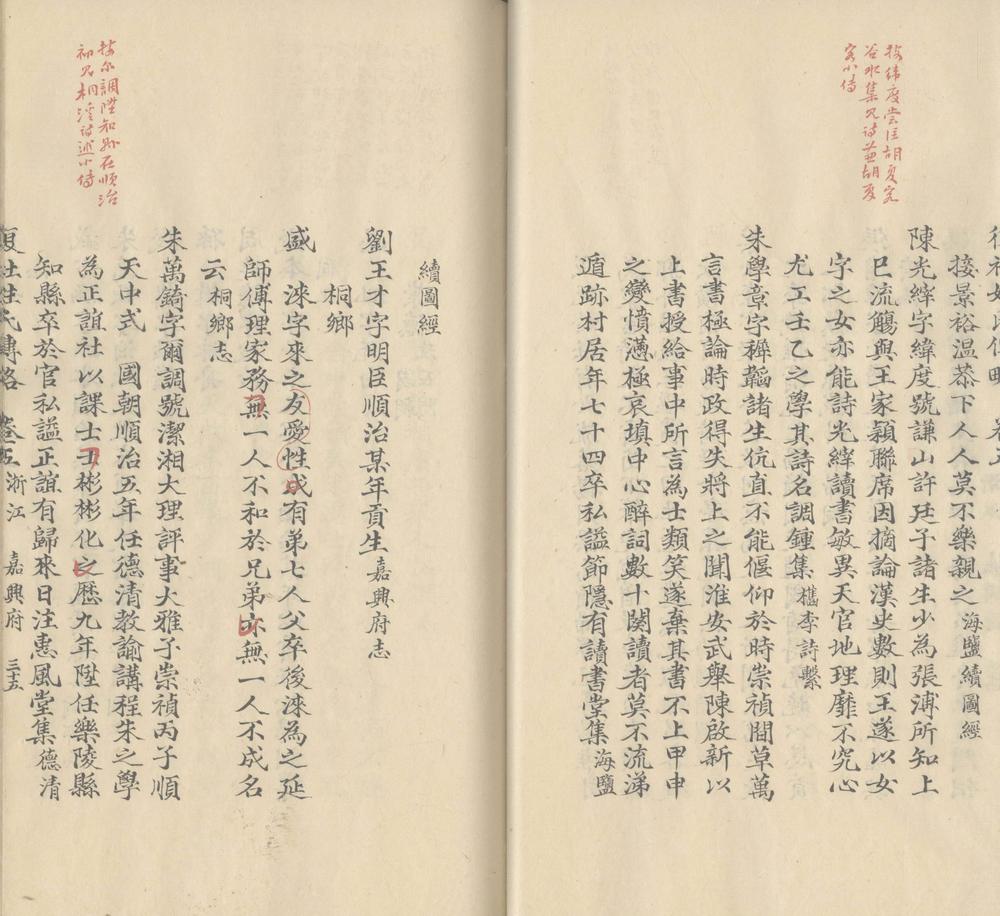 按緯度嘗注胡夏客
谷水集見詩胡夏
客小傳
接景裕溫恭下人人莫不樂親之海鹽續圖經
陳光縡字緯度號謙山許廷子諸生少為張溥所知上
巳流觴與王家穎聯席因摘論漢史數則王遂以女
字之女亦能詩光縡讀書敏異天官地理靡不究心
尤工壬乙之學其詩名調鍾集檇李詩繫
朱學章字韡韜諸生伉直不能偃仰於時崇禎間草萬
言書極論時政得失將上之聞淮安武舉陳啟新以
上書授給事中所言為士類笑遂棄其書不上甲申
之變憤懣極哀填中心醉詞數十闋讀者莫不流涕
遁跡村居年七十四卒私諡節隱有讀書堂集海鹽
按尔調陞知縣在順治
初見桐溪詩述小傳
續圖經
劉王才字明臣順治某年貢生嘉興府志
桐鄉
盛　淶字來之友愛性成有弟七人父卒後淶為之延
師傅理家務無一人不和於兄弟亦無一人不成名
云桐鄉志
朱萬錡字爾調號潔湘大理評事大雅子崇禎丙子順
天中式　國朝順治五年任德清教諭講程朱之學
為正誼社以課士士彬彬化之歷九年陞任樂陵縣
知縣卒於官私諡正誼有歸來日注惠風堂集德清
復社姓氏傳略　卷五浙江　嘉興府　三十五